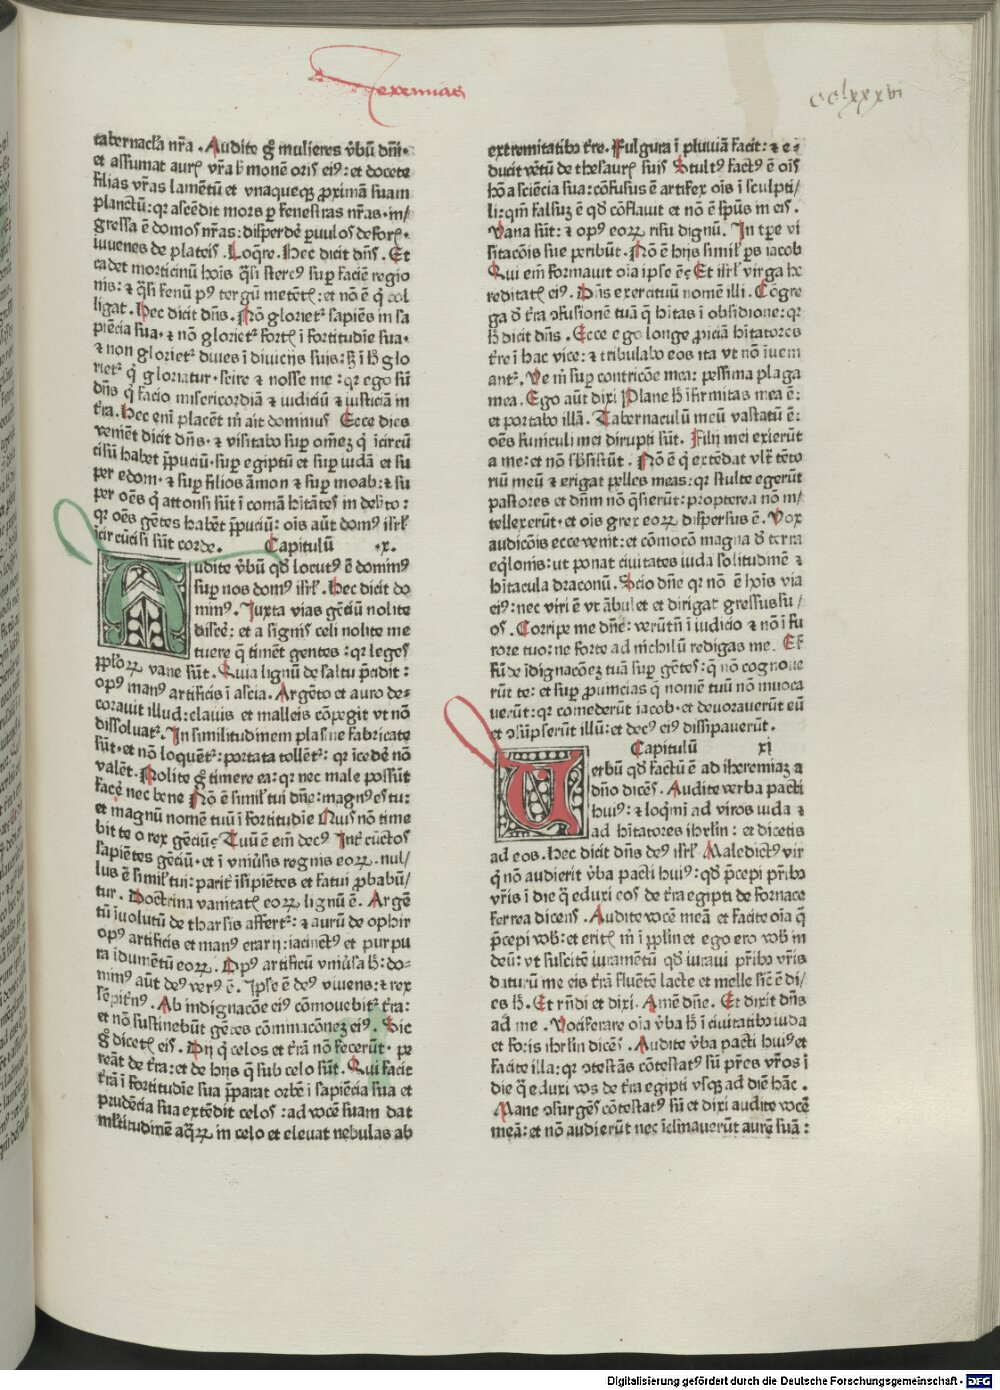 Jeremias
cclxxxvi
tabernacl'a nr̄a . Audite gͦ mulieres v̄bū dn̄i·
et assumat aureꝭ vr̄a ẜmonē oris eiꝰ: et docete
filias vr̄as lamētū et vnaqueqꝫ ꝓximā suam
planctū: qꝛ ascēdit mors ꝑ fenestras nr̄as · in/
gressa ē domos nr̄as: disperdeꝛ ꝑuulos de foriꝭ ·
iuuenes de plateis . Loq̄re . Hec dicit dn̄s . Et
cadet morticinū hoīs q̄si stercꝰ suꝑ faciē regio
nis: ⁊ q̄si fenū pꝰ tergū metētꝭ: et nō ē q̇ col
ligat . Hec dicit dn̄s . Nō glorietᷣ sapiēs in sa
piēcia sua · ⁊ nō glorietᷣ fortꝭ ī fortitudīe sua·
⁊ non glorietᷣ diues ī diuicijs suis: ẜꝫ ī h̄ glo
rietᷣ q̇ gloriatur · scire ⁊ nosse me : qꝛ ego sū
dn̄s q̇ facio misericordiā ⁊ iudiciū ⁊ iusticiā in
tr̄a . Hec eni placēt m̄ ait dominus Ecce dies
veniēt dicit dn̄s · ⁊ visitabo suꝑ om̄eꝫ q̇ īcircū
cisū habet p̄puciū · suꝑ egiptū et suꝑ iudā et su
per edom · ⁊ suꝑ filios āmon ⁊ suꝑ moab: ⁊ su
per oēs q̇ attonsi sūt ī comā hītātes in deserto :
qꝛ oēs gētes habēt p̄puciū: ois aūt domꝰ isrl̄
īcircūcisi sūt corde . Capitulū ·x.
Audite v̄bū qd̄ locutꝰ ē dominꝰ
suꝑ nos domꝰ isrl̄ . Hec dicit do
minꝰ . Iuxta vias gēciū nolite
discēꝛ: et a signis celi nolite me
tuere q̄ timēt gentes : qꝛ leges
ppl'oꝝ vane sūt . Quia lignū de saltu p̄cidit :
opꝰ manꝰ artificis ī ascia . Argēto et auro de=
corauit illud: clauis et malleis cōpegit vt nō
dissoluatᷣ . In similitudinem palme fabricate
sūt · et nō loquētᷣ: portata tollētᷣ: qꝛ īcedeꝛ nō
valēt . Nolite gͦ timere ea: qꝛ nec male possūt
faceꝛ nec bene Nō ē simiꝉ tui dn̄e: magnꝰ es tu:
et magnū nomē tuū ī fortitudīe Quis nō time
bit te o rex gēciūꝭ Tuū ē em̄ decꝰ Intᷣ cūctos
sapiētes gēciū · et ī vniūsis regnis eoꝝ · nul/
lus ē simiꝉ tui: paritᷣ īsipiētes et fatui ꝓbabū/
tur . Doctrina vanitatꝭ eoꝝ lignū ē . Argē
tū īuolutū de tharsis affertᷣ: ⁊ aurū de ophir
opꝰ artificis et manꝰ erarij: iacinctꝰ et purpu
ra īdumētū eoꝝ . Opꝰ artificū vniūsa h̄: do=
minꝰ aūt deꝰ verꝰ ē . Ipse ē deꝰ viuens: ⁊ rex
sēpit̄nꝰ . Ab indignacōe eiꝰ cōmouebitᷣ tr̄a:
et nō sustinebūt gētes cōmmacōneꝫ eiꝰ . Sic
gͦ dicetꝭ eis . Dij q̇ celos et tr̄ā nō fecerūt · pe
reāt de tr̄a: et de hijs q̄ sub celo sūt . Qui facit
tr̄ā ī fortitudīe sua p̄parat orbē ī sapiēcia sua et
prudēcia sua extēdit celos : ad vocē suam dat
ml̄titudinē aq̄ꝝ in celo et eleuat nebulas ab
extremitatibꝰ t̄re . Fulgura ī pluuiā facit: ⁊ e=
ducit vētū de thesaurꝭ suis Stultꝰ factꝰ ē oīs
hō a sciēcia sua: cōfusus ē artifex ois ī sculpti/
li: qm̄ falsuꝫ ē qd̄ cōflauit et nō ē sp̄us in eis .
Vana sūt: ⁊ opꝰ eoꝝ risu dignū . In tp̄e vi
sitacōis sue peribūt . Nō ē hijs simiꝉ ps̄ iacob
Qui em̄ formauit oīa ipse ēꝭ Et isrl̄ virga he
reditatꝭ eiꝰ . Dn̄s exercituū nomē illi . Cōgre
ga d̄ tr̄a ꝯfusionē tuā q̄ hītas ī obsidione: qꝛ
h̄ dicit dn̄s . Ecce ego longe ꝓiciā hītatores
t̄re ī hac vice: ⁊ tribulabo eos ita vt nō īueni
antᷣ . Ve m̄ suꝑ contricōe mea: pessima plaga
mea . Ego aūt dixi Plane h̄ īfirmitas mea ē:
et portabo illā . Tabernaculū meū vastatū ē:
oēs funiculi mei dirupti sūt . Filij mei exierūt
a me: et nō sb̄sistūt . Nō ē q̇ extēdat vltᷣ tēto
riū meū ⁊ erigat pelles meas: qꝛ stulte egerūt
pastores et dn̄m nō q̄sierūt: propterea nō in/
tellexerūt · et ois grex eoꝝ dispersus ē . Vox
audicōis ecce venit: et cōmocō magna d̄ terra
eq̇lonis: vt ponat ciuitates iuda solitudinē ⁊
hītacula draconū . Scio dn̄e qꝛ nō ē hoīs via
eiꝰ: nec viri ē vt ābulet et dirigat gressus su/
os . Corripe me dn̄e: verūtn̄ ī iudicio ⁊ nō ī fu
rore tuo: ne forte ad nichilū redigas me . Ef
fūde īdignacōeꝫ tuā suꝑ gētes: q̄ nō cognoue
rūt te: et suꝑ ꝓuincias q̄ nomē tuū nō īuoca
uerūt: qꝛ comederūt iacob · et deuorauerūt eū
et ꝯsūpserūt illū: et decꝰ eiꝰ dissipauerūt .
Capitulū xi
Verbū qd̄ factū ē ad iheremiaꝫ a
dn̄o dicēs . Audite verba pacti
huiꝰ: ⁊ loq̄mī ad viros iuda ⁊
ad hītatores ihrl̄m: et dicetis
ad eos . Hec dicit dn̄s deꝰ isrl̄ Maledictꝰ vir
q̇ nō audierit v̄ba pacti huiꝰ: qd̄ p̄cepi pr̄ibꝰ
vr̄is ī die q̄ eduxi eos de tr̄a egipti de fornace
ferrea dicens . Audite vocē meā et facite oīa q̄
p̄cepi vob̄: et eritꝭ m̄ ī ppl̄m et ego ero vob̄ in
deū: vt suscitē iuramētū qd̄ iuraui pr̄ibꝰ vr̄is
daturū me eis tr̄ā fluētē lacte et melle sic̄ ē di/
es h̄ . Et rn̄di et dixi . Amē dn̄e . Et dixit dn̄s
ad me . Vociferare oīa v̄ba h̄ ī ciuitatibꝰ iuda
et foris ihrl̄m dicēs . Audite v̄ba pacti huiꝰ et
facite illa: qꝛ ꝯtestās cōtestatꝰ sū pr̄es vr̄os ī
die q̄ eduxi vos de tr̄a egipti vsqꝫ ad diē hāc .
Mane ꝯsurgēs cōtestatꝰ sū et dixi audite vocē
meā: et nō audierūt nec īclinauerūt aurē suā :
Digitalisierung gefördert durch die Deutsche Forschungsgemeinschaft - DFG